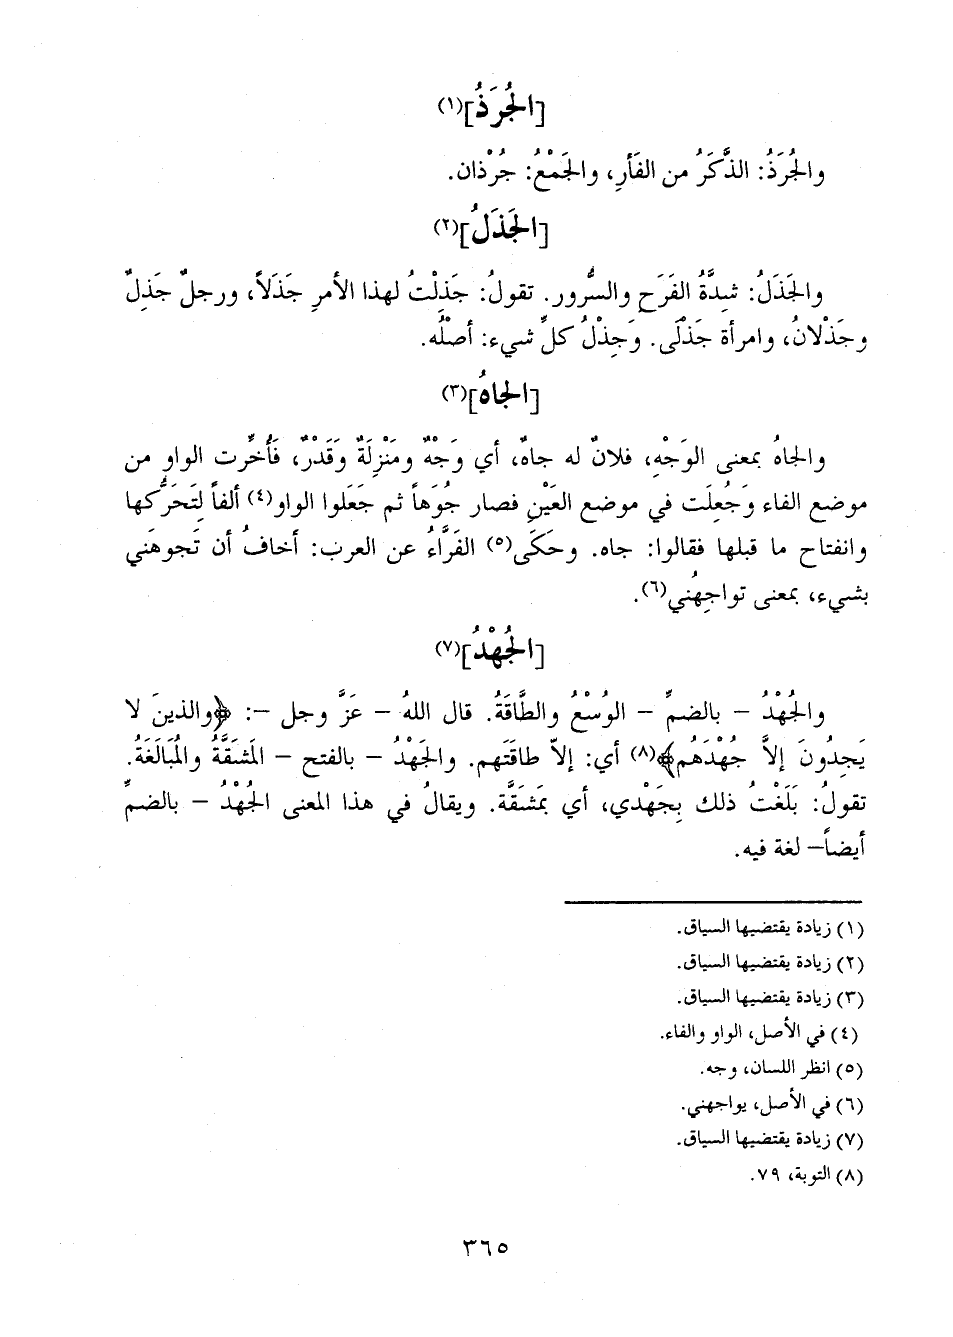 [الجُرَذُ](١)
والجُرَذُ: الذَّكَرُ من الفَأرِ، والجَمْعُ: جُرْذان.
[الجَذَلُ](٢)
والجَذَلُ: شِدَّةُ الفَرَحِ والسُّرور. تقولُ: جَذِلْتُ لهذا الأمرِ جَذَلاً، ورجلٌ جَذِلٌ
وجَذْلانُ، وامرأة جَذْلَى. وَجِذْلُ كلِّ شيء: أصْلُه.
[الجاهُ](٣)
والجاهُ بمعنى الوَجْهِ، فلانٌ له جاهٌ، أي وَجْهٌ ومَنْزِلَةٌ وقَدْرٌ، فَأُخِّرت الواو من
موضع الفاء وَجُعِلَت في موضع العَيْنِ فصار جُوَهاً ثم جَعَلوا الواو(٤) ألفاً لِتَحَرُّكها
وانفتاح ما قبلها فقالوا: جاه. وحَكَى(٥) الفَرَّاءُ عن العرب: أخافُ أن تَجوهَني
بشيء، بمعنى تواجِهُني(٦).
[الجُهْدُ](٧)
والجُهْدُ – بالضمِّ – الوُسْعُ والطَّاقَةُ. قال اللهُ – عَزَّ وجل –: ﴿والذينَ لا
يَجِدُونَ إلاَّ جُهْدَهُم﴾(٨) أي: إلاّ طاقَتَهم. والجَهْدُ – بالفتح – المَشَقَّةُ والمُبَالَغَةُ.
تقولُ: بَلَغْتُ ذلك بِجَهْدي، أي بمَشَقَّة. ويقالُ في هذا المعنى الجُهْدُ – بالضمِّ
أيضاً– لغة فيه.
(١) زيادة يقتضيها السياق.
(٢) زيادة يقتضيها السياق.
(٣) زيادة يقتضيها السياق.
(٤) في الأصل، الواو والفاء.
(٥) انظر اللسان، وجه.
(٦) في الأصل، يواجهني.
(٧) زيادة يقتضيها السياق.
(٨) التوبة، ٧٩.
٣٦٥